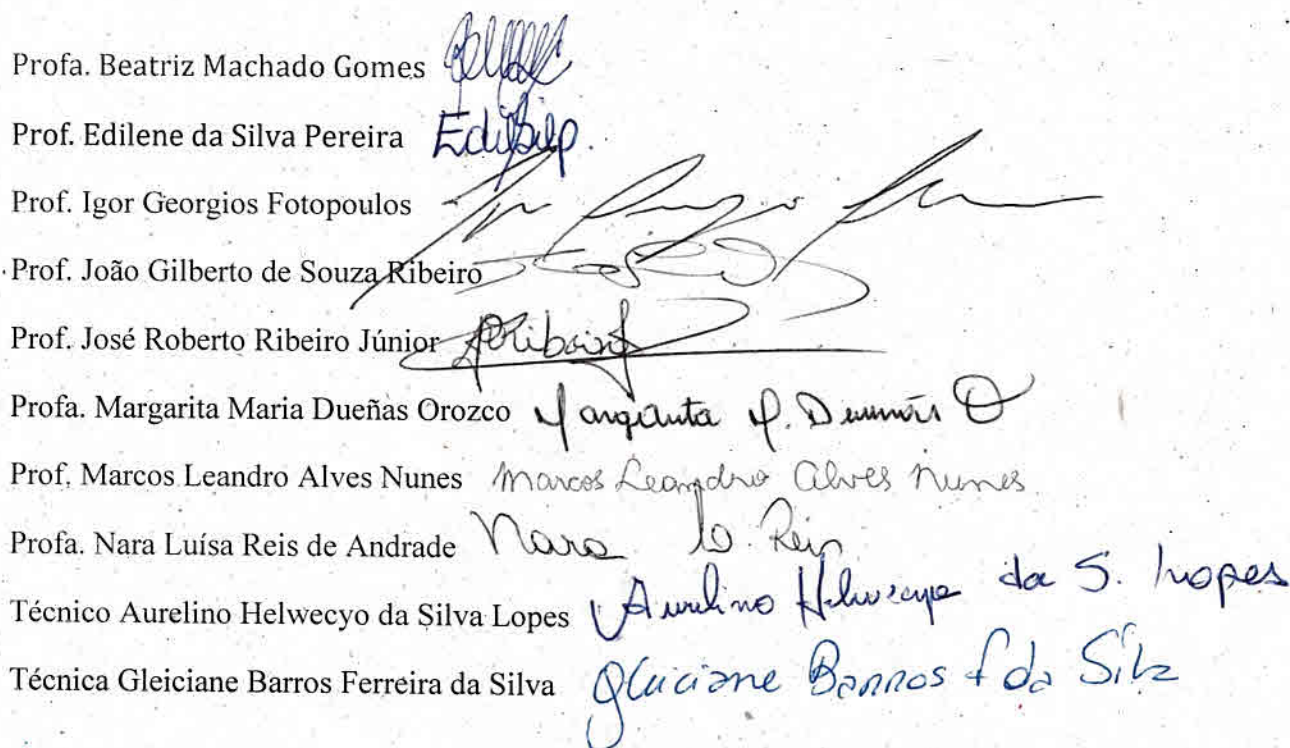 Profa. Beatriz Machado Gomes
Prof. Edilene da Silva Pereira
Prof. Igor Georgios Fotopoulos
Prof. João Gilberto de Souza Ribeiro
Prof. José Roberto Ribeiro Júnior
Profa. Margarita Maria Dueñas Orozco Margarita M. Dueñas O
Prof. Marcos Leandro Alves Nunes Marcos Leandro Alves Nunes
Profa. Nara Luísa Reis de Andrade Nara L. Reis
Técnico Aurelino Helwecyo da Silva Lopes Aurelino Helwecyo da S. Lopes
Técnica Gleiciane Barros Ferreira da Silva Gleiciane Barros F da Silva